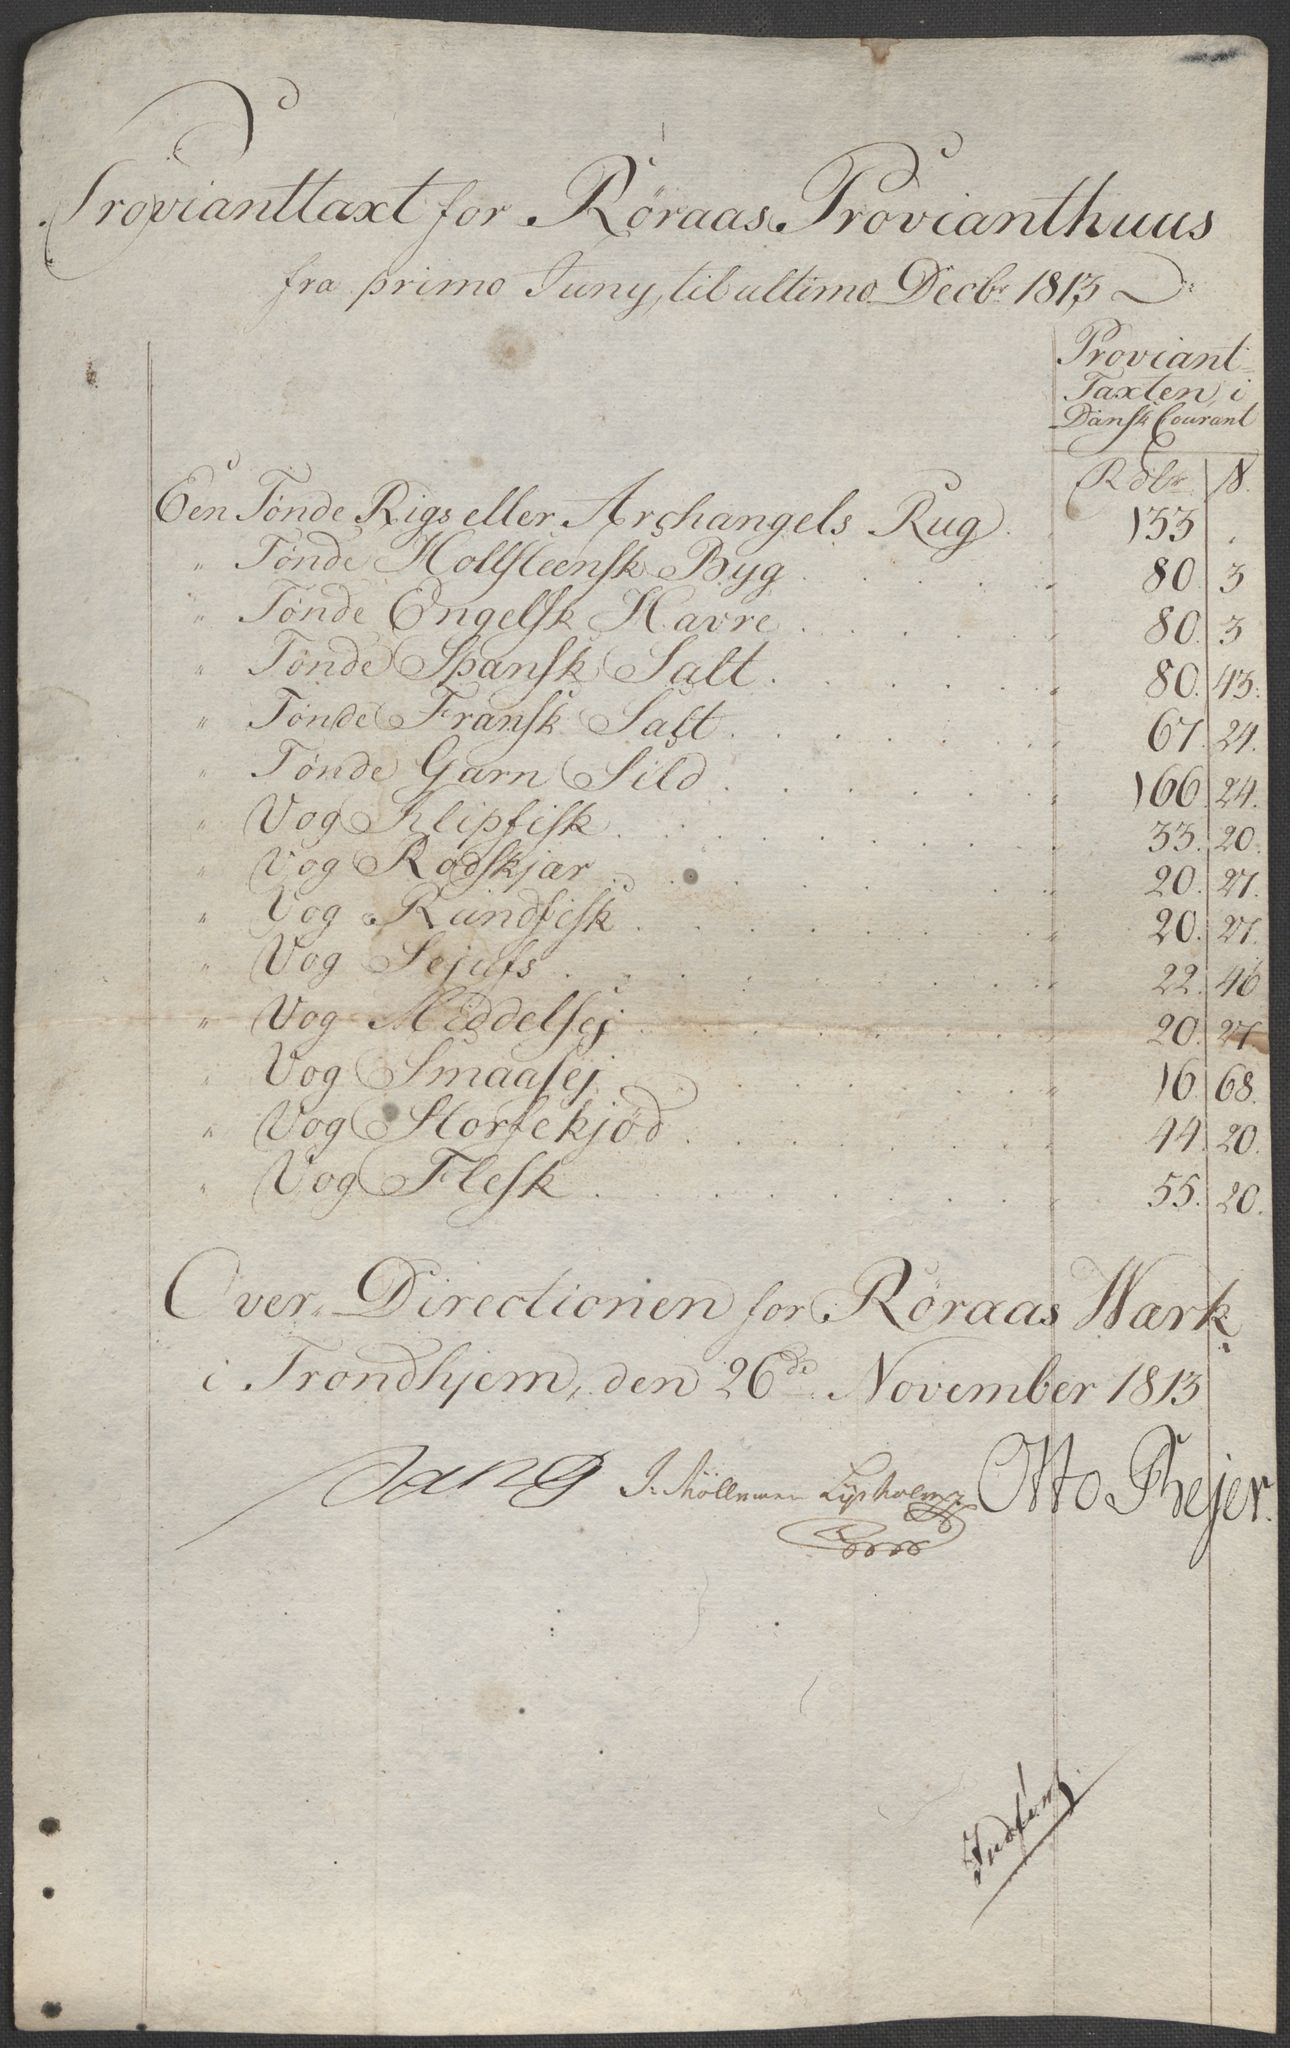 Provianttaxt for Röraas Provianthuus
fra primo Juny, til ultimo Decbr 1813
Proviant-
Taxten i
Dansk Courant
Rdlr. | s.
Een Tønde Rigs eller Archangels Rug . 133 .
" Tønde Hollsteensk Byg . . . . . 80. 3
" Tønde Engelsk Havre . . . . . 80. 3
" Tønde Spansk Salt . . . . . 80. 43.
" Tønde Fransk Salt . . . . . 67. 24.
" Tønde Garn Sild . . . . . 166. 24.
" Vog Klipfisk . . . . . 33. 20.
" Vog Rodskjær . . . . . 20. 27.
" Vog Rundfisk . . . . . 20. 27.
" Vog Sejufs . . . . . 22. 46
" Vog Middelsej . . . . . 20. 27.
" Vog Smaasej . . . . . 16. 68.
" Vog Storfekjød . . . . . 44. 20.
" Vog Flesk . . . . . 55. 20.
Over-Directionen for Röraas Wærk
i Trondhjem, den 26de November 1813
Jang J. Möllmann Lysholm Otto Bejer.